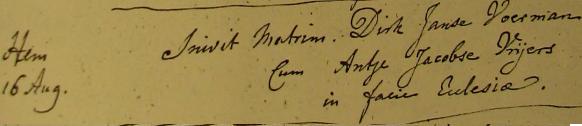 Hem
16 Aug.
Inivit Matrim. Dirk Janse Voerman
Cum Antje Jacobse Vrijers
in facie Eclesiæ.